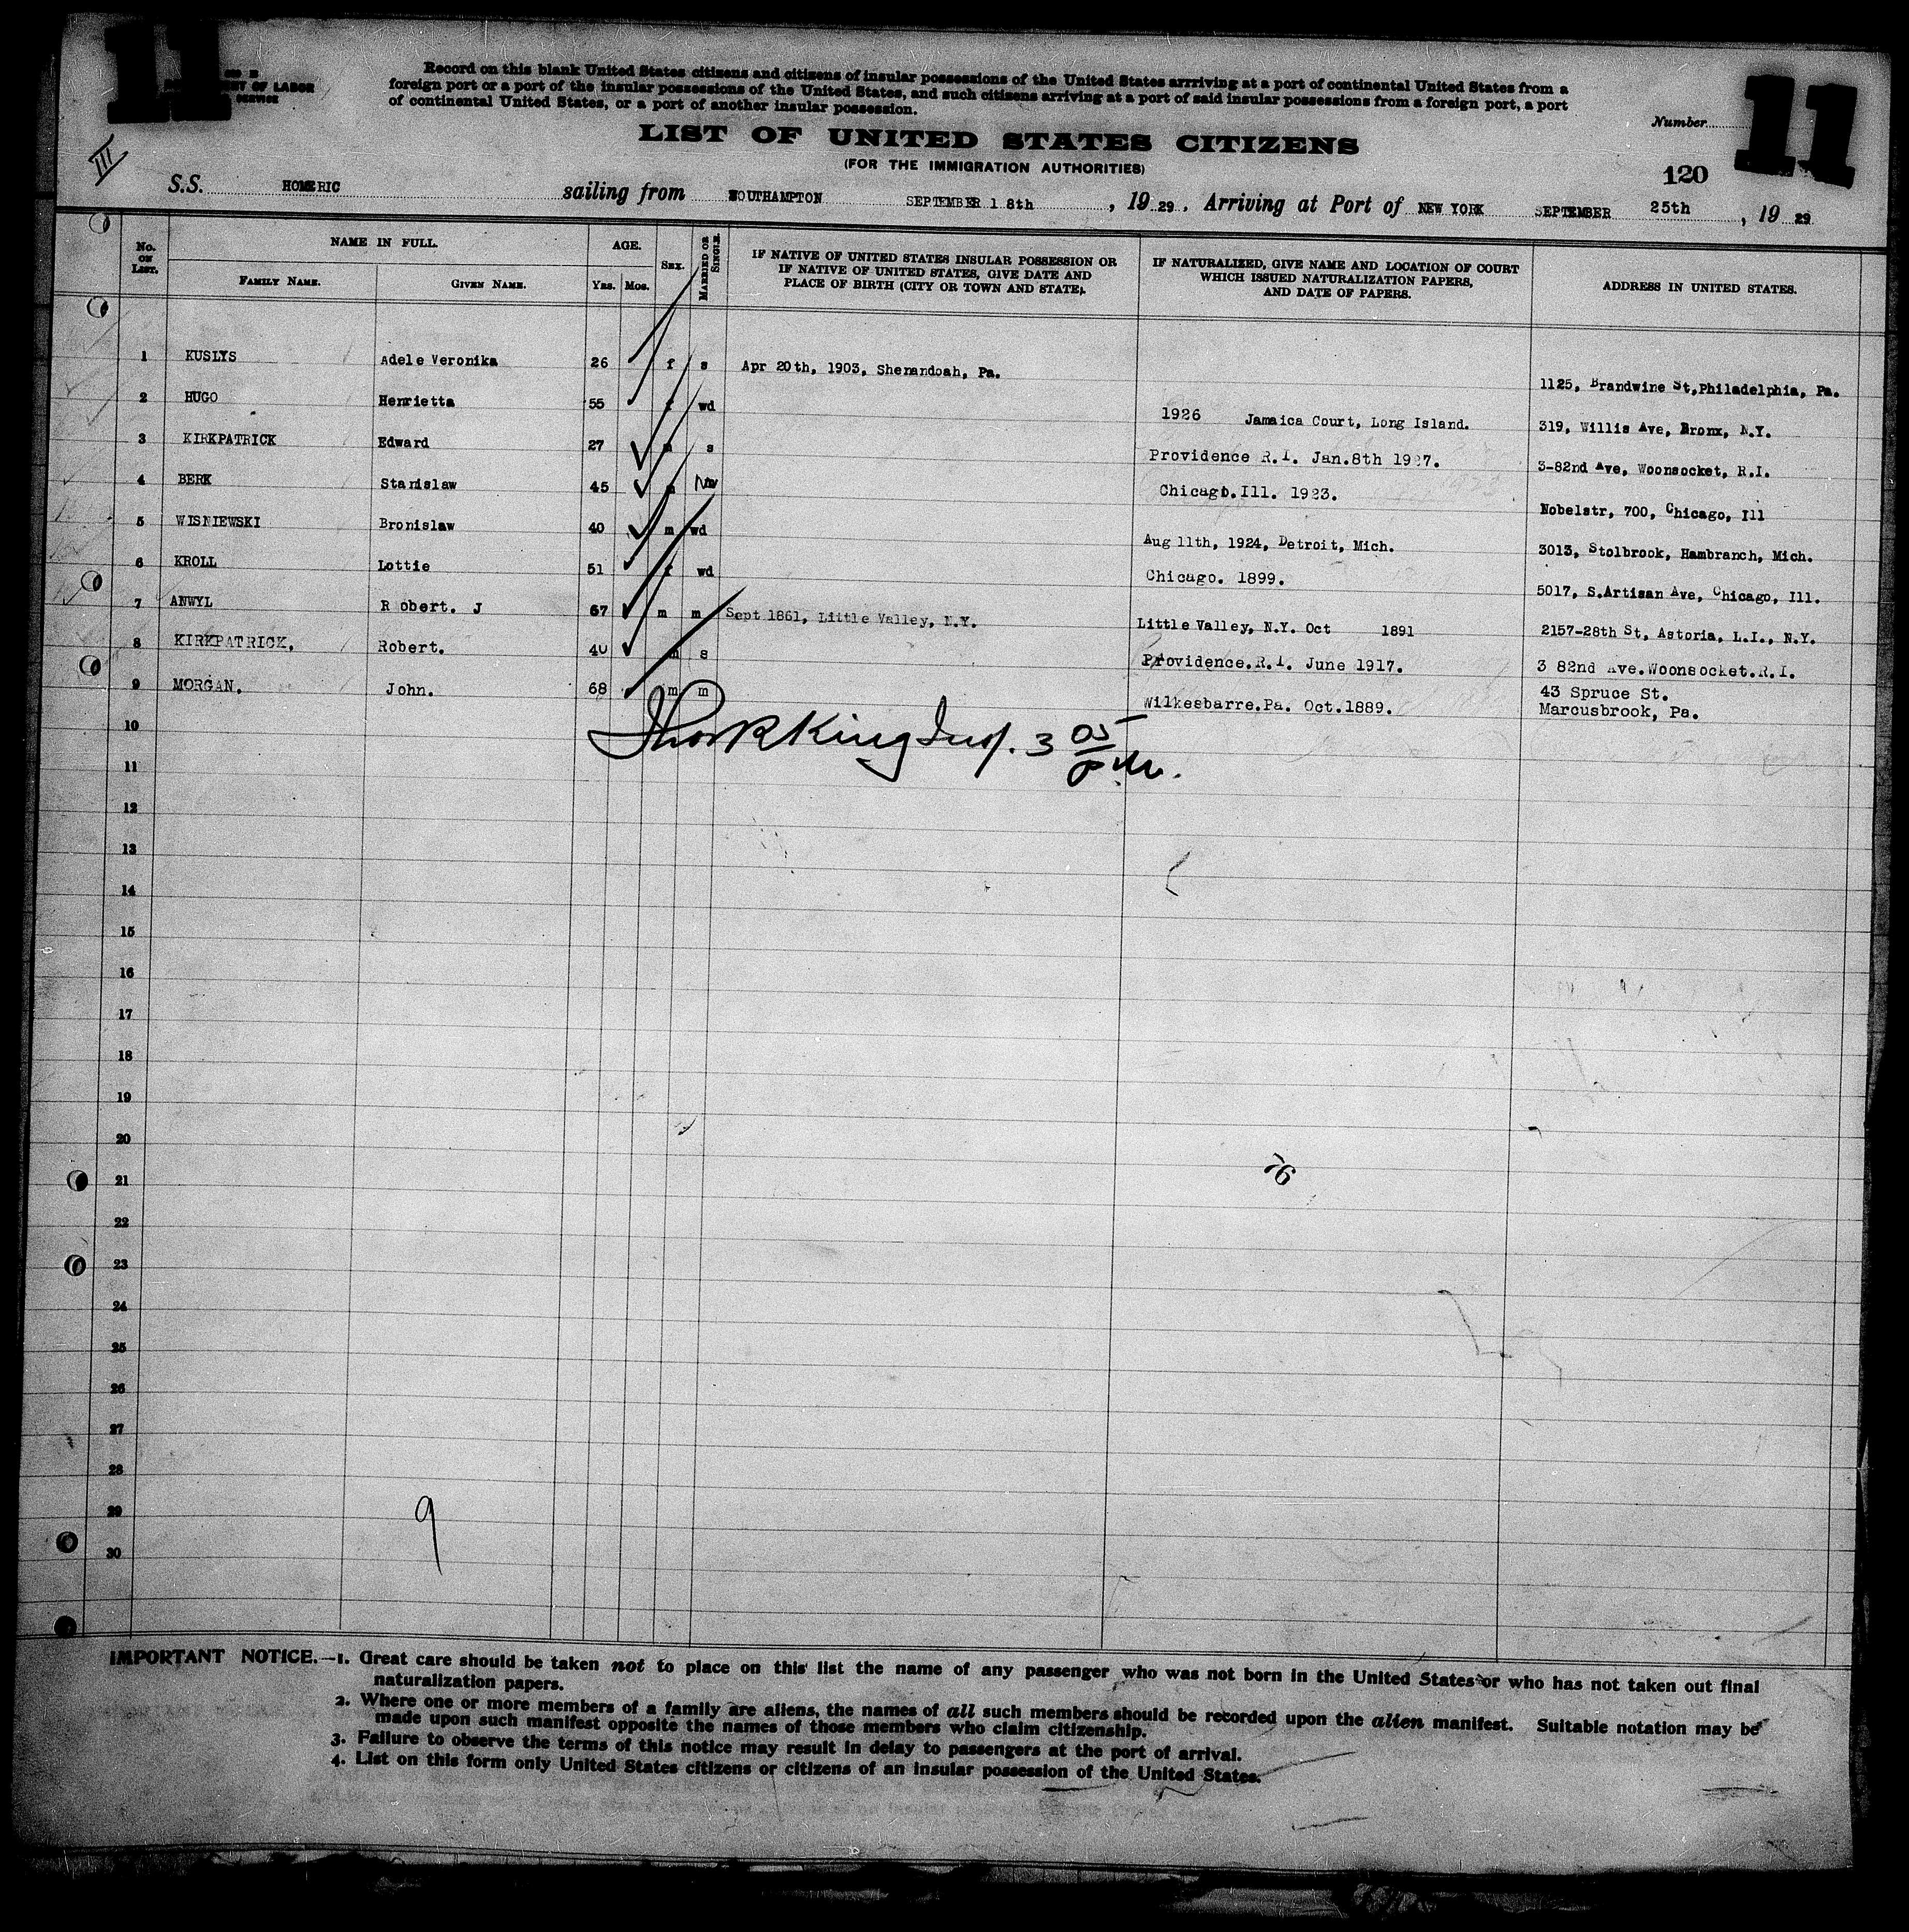 11
OF LABOR
SERVICE
Record on this blank United States citizens and citizens of insular possessions of the United States arrriving at a port of continental United States from a
foreign port or a port of the insular possessions of the United States, and such citizens arriving at a port of said insular possessions from a foreign port, a port
of continental United States, or a port of another insular possession.
Number
11
LIST OF UNITED STATES CITIZENS
(FOR THE IMMIGRATION AUTHORITIES)
III
120
S.S. HOMERIC sailing from SOUTHAMPTON SEPTEMBER 18th, 1929, Arriving at Port of NEW YORK SEPTEMBER 25th, 1929
No. ON LIST. NAME IN FULL. AGE. SEX. MARRIED OR SINGLE. IF NATIVE OF UNITED STATES INSULAR POSSESSION OR IF NATIVE OF UNITED STATES, GIVE DATE AND PLACE OF BIRTH (CITY OR TOWN AND STATE). IF NATURALIZED, GIVE NAME AND LOCATION OF COURT WHICH ISSUED NATURALIZATION PAPERS, AND DATE OF PAPERS. ADDRESS IN UNITED STATES.
FAMILY NAME. GIVEN NAME. YRS. MOS.
1 KUSLYS Adele Veronika 26 f s Apr 20th, 1903, Shenandoah, Pa. 1125, Brandwine St,Philadelphia, Pa.
2 HUGO Henrietta 55 f wd 1926 Jamaica Court, Long Island. 319, Willis Ave, Bronx, N.Y.
3 KIRKPATRICK Edward 27 m s Providence R.I. Jan.8th 1927. 3-82nd Ave, Woonsocket, R.I.
4 BERK Stanislaw 45 m Chicago.Ill. 1923. Nobelstr, 700, Chicago, Ill
5 WISNIEWSKI Bronislaw 40 m wd Aug 11th, 1924, Detroit, Mich. 3013, Stolbrook, Hambranch, Mich.
6 KROLL Lottie 51 f wd Chicago. 1899. 5017, S.Artisan Ave, Chicago, Ill.
7 ANWYL Robert. J 67 m m Sept 1861, Little Valley, N.Y. Little Valley, N.Y. Oct 1891 2157-28th St, Astoria, L.I., N.Y.
8 KIRKPATRICK. Robert. 40 m s Providence.R.I. June 1917. 3 82nd Ave.Woonsocket.R.I.
9 MORGAN. John. 68 m m Wilkesbarre.Pa. Oct.1889. 43 Spruce St.
Marcusbrook, Pa.
10
King Insp. 3 05
11
12
13
14
15
16
17
18
19
20
76
21
22
23
24
25
26
27
28
29
9
30
IMPORTANT NOTICE.—1. Great care should be taken not to place on this list the name of any passenger who was not born in the United States or who has not taken out final
naturalization papers.
2. Where one or more members of a family are aliens, the names of all such members should be recorded upon the alien manifest. Suitable notation may be
made upon such manifest opposite the names of those members who claim citizenship.
3. Failure to observe the terms of this notice may result in delay to passengers at the port of arrival.
4. List on this form only United States citizens or citizens of an insular possession of the United States.